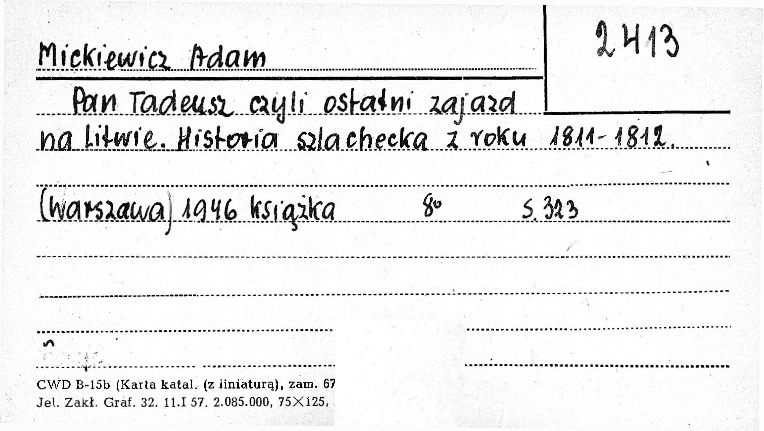 2413
Mickiewicz Adam
Pan Tadeusz czyli ostatni zajazd
na Litwie. Historia szlachecka z roku 1811-1812.
(Warszawa) 1946 książka 8° S. 323
CWD B-15b (Karta katal. (z liniaturą), zam. 67
Jel. Zakł. Graf. 32. 11.I 57. 2.085.000, 75×125,